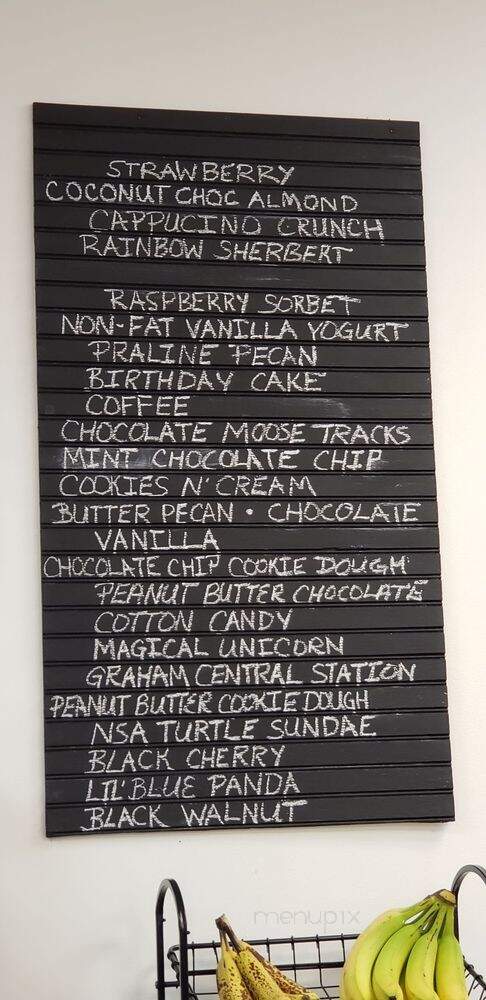 STRAWBERRY
COCONUT CHOC ALMOND
CAPPUCINO CRUNCH
RAINBOW SHERBERT
RASPBERRY SORBET
NON-FAT VANILLA YOGURT
PRALINE PECAN
BIRTHDAY CAKE
COFFEE
CHOCOLATE MOOSE TRACKS
MINT CHOCOLATE CHIP
COOKIES N' CREAM
BUTTER PECAN • CHOCOLATE
VANILLA
CHOCOLATE CHIP COOKIE DOUGH
PEANUT BUTTER CHOCOLATE
COTTON CANDY
MAGICAL UNICORN
GRAHAM CENTRAL STATION
PEANUT BUTTER COOKIE DOUGH
NSA TURTLE SUNDAE
BLACK CHERRY
LIL' BLUE PANDA
BLACK WALNUT
menupix